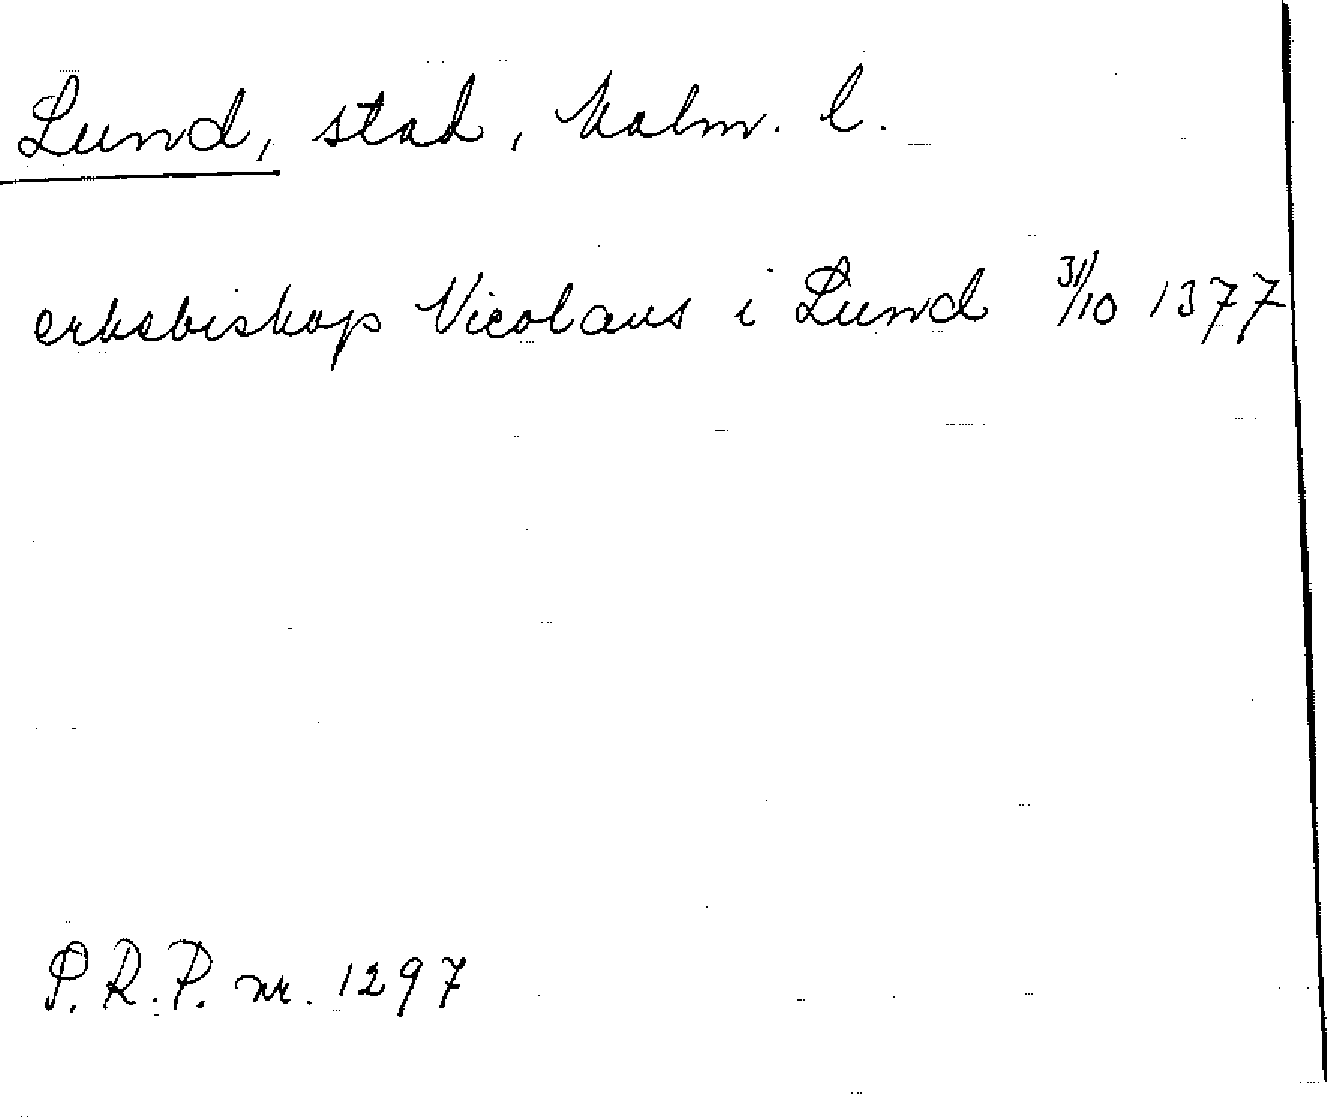 Lund, stad, Malm. l.
ärkebiskop Nicolaus i Lund 31/10 1377
P.R.P. nr. 1297